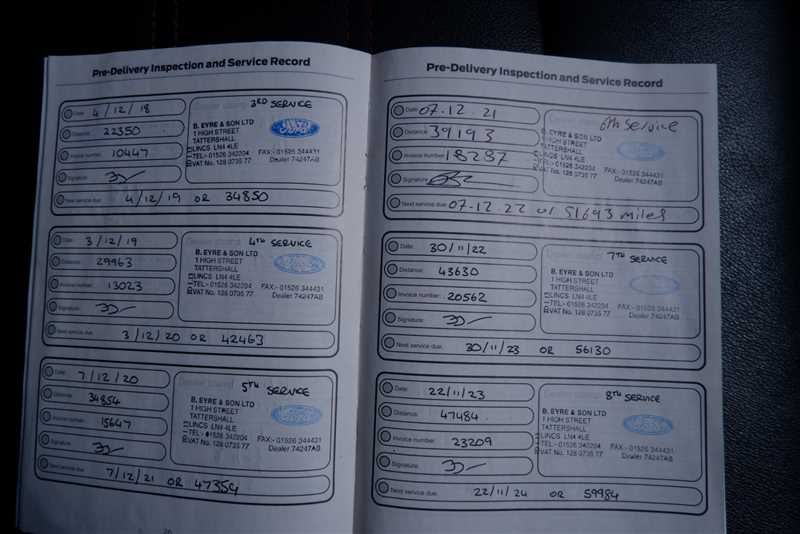 Pre-Delivery Inspection and Service Record
Date: 4/12/18
Distance: 22350
Invoice number: 10447
Signature:
Next service due: 4/12/19 OR 34850
3RD SERVICE
B. EYRE & SON LTD
1 HIGH STREET
TATTERSHALL
LINCS LN4 4LE
TEL:- 01526 342204 FAX:- 01526 344431
VAT No. 128 0735 77 Dealer 74247AB
Date: 3/12/19
Distance: 29963
Invoice number: 13023
Signature:
Next service due: 3/12/20 OR 42463
4TH SERVICE
B. EYRE & SON LTD
1 HIGH STREET
TATTERSHALL
LINCS LN4 4LE
TEL:- 01526 342204 FAX:- 01526 344431
VAT No. 128 0735 77 Dealer 74247AB
Date: 7/12/20
Distance: 34854
Invoice number: 15647
Signature:
Next service due: 7/12/21 OR 47354
5TH SERVICE
B. EYRE & SON LTD
1 HIGH STREET
TATTERSHALL
LINCS LN4 4LE
TEL:- 01526 342204 FAX:- 01526 344431
VAT No. 128 0735 77 Dealer 74247AB
Pre-Delivery Inspection and Service Record
Date: 07.12.21
Distance: 39193
Invoice Number: 18287
Signature:
Next service due: 07.12.22 or 51693 miles
6th Service
B. EYRE & SON LTD
1 HIGH STREET
TATTERSHALL
LINCS LN4 4LE
TEL:- 01526 342204 FAX:- 01526 344431
VAT No. 128 0735 77 Dealer 74247AB
Date: 30/11/22
Distance: 43630
Invoice number: 20562
Signature:
Next service due: 30/11/23 OR 56130
7TH SERVICE
B. EYRE & SON LTD
1 HIGH STREET
TATTERSHALL
LINCS LN4 4LE
TEL:- 01526 342204 FAX:- 01526 344431
VAT No. 128 0735 77 Dealer 74247AB
Date: 22/11/23
Distance: 47484
Invoice number: 23209
Signature:
Next service due: 22/11/24 OR 59984
8TH SERVICE
B. EYRE & SON LTD
1 HIGH STREET
TATTERSHALL
LINCS LN4 4LE
TEL:- 01526 342204 FAX:- 01526 344431
VAT No. 128 0735 77 Dealer 74247AB